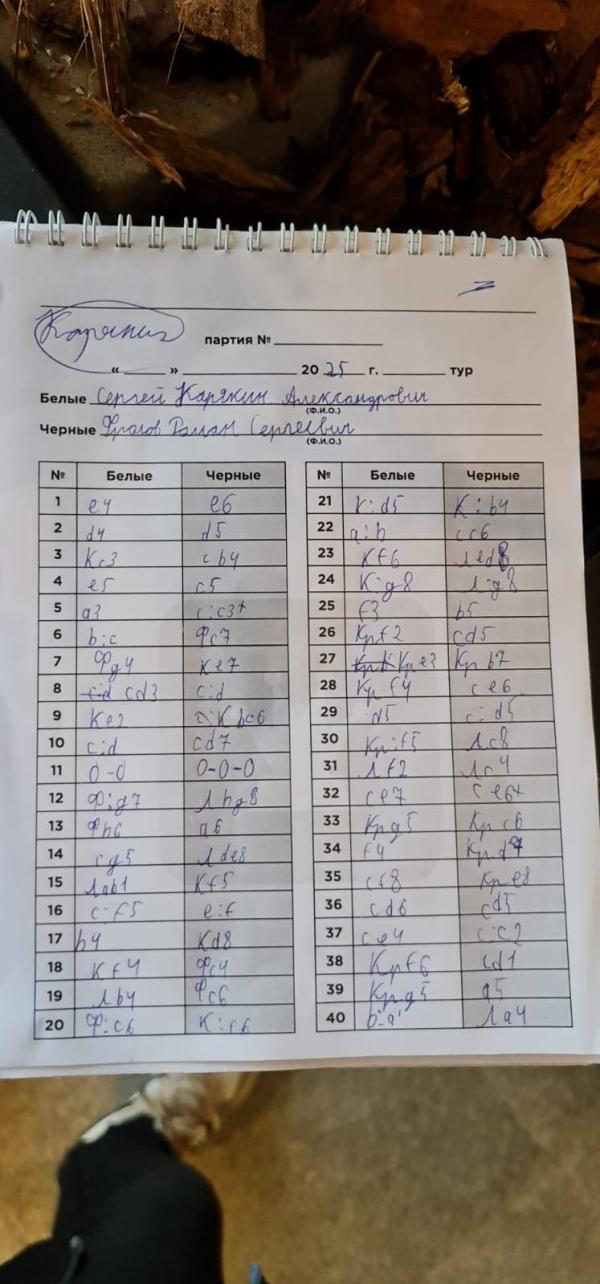 Карякин
партия №
« » 2025 г. тур
Белые Сергей Карякин Александрович
(Ф.И.О.)
Черные Роман Сергеевич
(Ф.И.О.)
№ Белые Черные
1 e4 e6
2 d4 d5
3 Кc3 cb4
4 e5 c5
5 a3 c:c3+
6 b:c Фc7
7 Фg4 Кe7
8 cd3 c:d
9 Кe2 Кbc6
10 c:d cd7
11 0-0 0-0-0
12 Ф:g7 Лhg8
13 Фh6 a6
14 cg5 Лde8
15 Лab1 Кf5
16 c:f5 e:f
17 h4 Кd8
18 Кf4 Фc4
19 Лb4 Фc6
20 Ф:c6 К:c6
№ Белые Черные
21 К:d5 К:b4
22 a:b cc6
23 Кf6 Лed8
24 К:g8 Л:g8
25 f3 b5
26 Крf2 cd5
27 Крe3 Крb7
28 Крf4 ce6
29 d5 c:d5
30 Кр:f5 Лc8
31 Лf2 Лc4
32 ce7 ce6+
33 Крg5 Крc6
34 f4 Крd7
35 cf8 Крe8
36 cd6 cd5
37 ce4 c:c2
38 Крf6 cd1
39 Крg5 a5
40 b:a Лa4